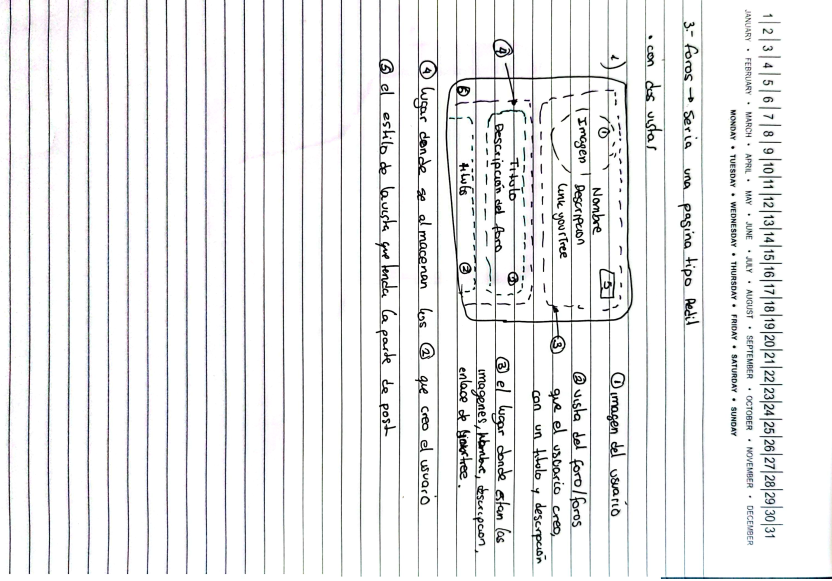 1 2 3 4 5 6 7 8 9 10 11 12 13 14 15 16 17 18 19 20 21 22 23 24 25 26 27 28 29 30 31
JANUARY • FEBRUARY • MARCH • APRIL • MAY • JUNE • JULY • AUGUST • SEPTEMBER • OCTOBER • NOVEMBER • DECEMBER
MONDAY • TUESDAY • WEDNESDAY • THURSDAY • FRIDAY • SATURDAY • SUNDAY
3.- foros → Seria una pagina tipo
• con dos vistas
1)
① Imagen
Nombre
Descripcion
Link yourTree
5
③
④
Titulo
Descripción del foro
②
⑤
titulo
②
① imagen del usuario
② vista del foro/foros
que el usuario creo,
con un titulo y descripción
③ el lugar donde estan las
imagenes, Nombre, descripcion,
enlace de yourtree.
④ lugar donde se almacenan los ② que creo el usuario
⑤ el estilo de la vista que tenda la parte de post